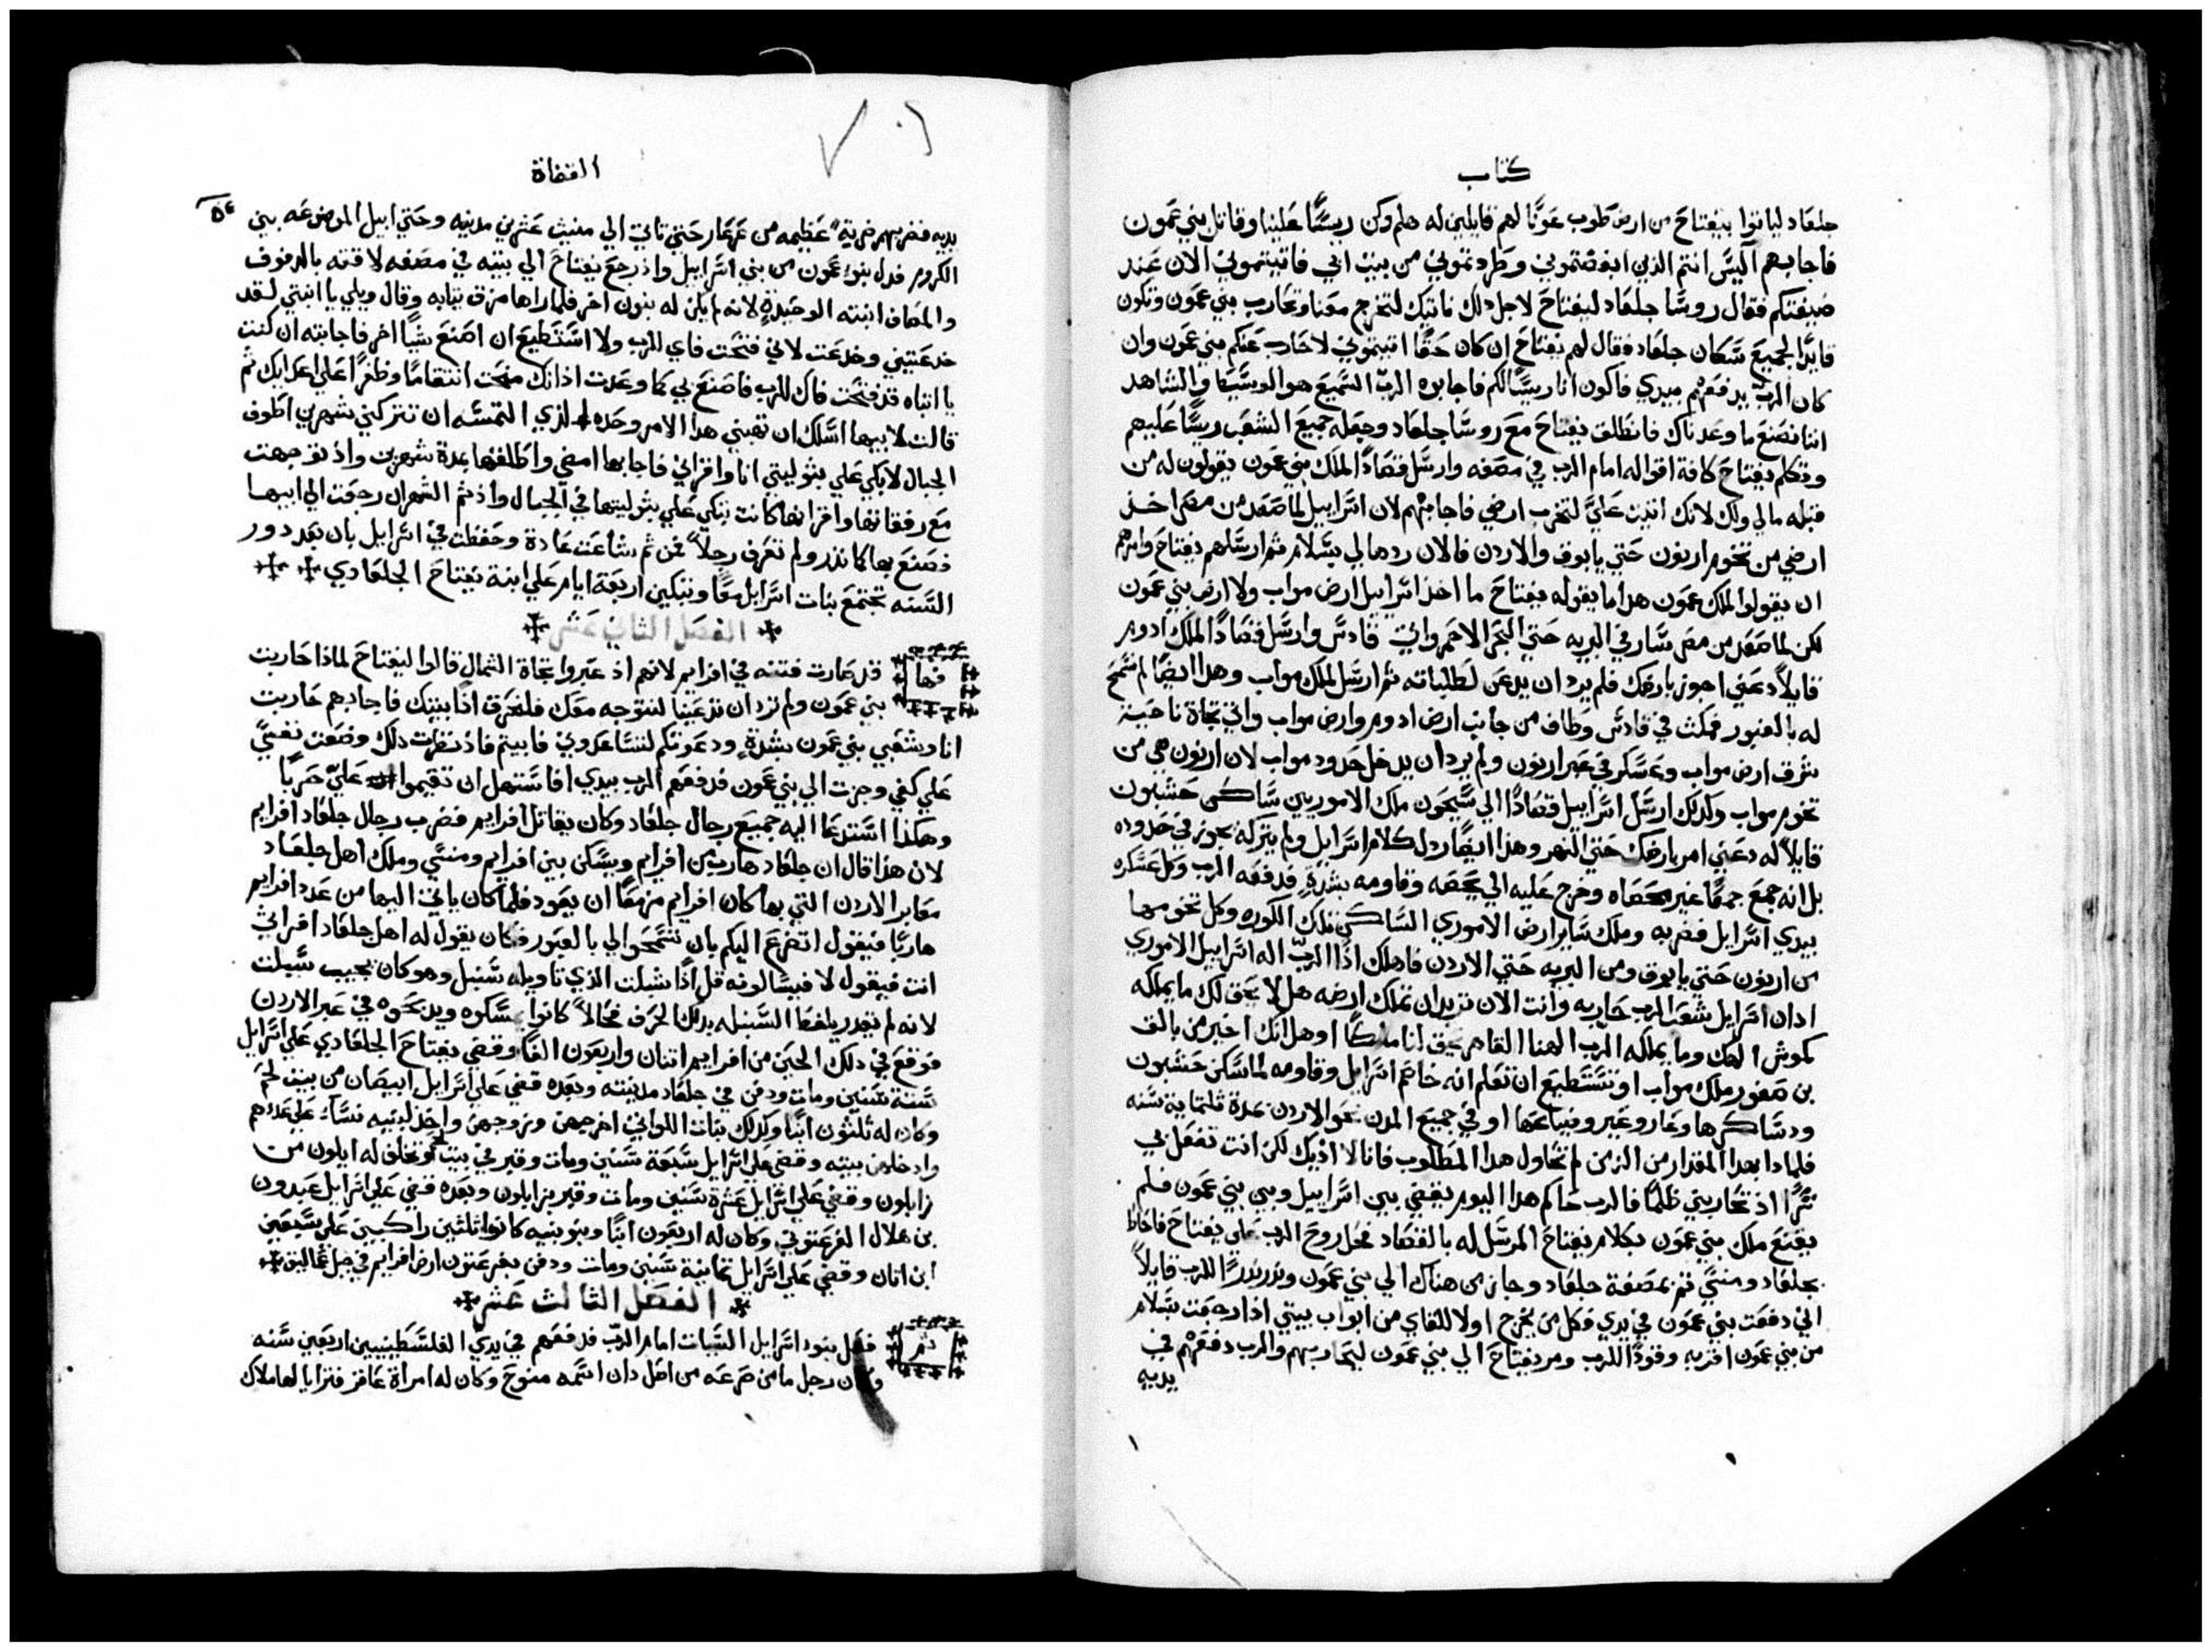 كتاب
جلعاد لياتوا بيفتاح من ارض طوب عونًا لهم قايلين له هلم وكن رييسًا علينا وقاتل بني عمون
فاجابهم اليس انتم الذين ابغضتموني وطردتموني من بيت ابي فاتيتموني الان عند
ضيقتكم فقال روسا جلعاد ليفتاح لاجل ذلك ناتيك لتخرج معنا وتحارب بني عمون وتكون
قايدًا لجميع سكان جلعاد فقال لهم يفتاح ان كان حقًا اتيتموني لاحارب عنكم بني عمون وان
كان الرب يدفعهم بيدي فاكون انا رييسًا لكم فاجابوه الرب السميع هو الوسيط والشاهد
اننا نصنع ما وعدناك فانطلق يفتاح مع روسا جلعاد وجعله جميع الشعب رييسًا عليهم
وتكلم يفتاح كافة اقواله امام الرب في مصفه وارسل قصادًا لملك بني عمون يقولون له من
قبله مالي ولك لانك اتيت عليّ لتخرب ارضي فاجابهم لان اسراييل لما صعد من مصر اخذ
ارضي من تخوم ارنون حتي يابوق والاردن فالان ردها لي بسلام ثم ارسلهم يفتاح وامرهم
ان يقولوا لملك عمون هذا ما يقوله يفتاح ما اخذ اسراييل ارض مواب ولا ارض بني عمون
لكن لما صعد من مصر سار في البريه حتي البحر الاحمر واتي قادس وارسل قصادًا لملك ادوم
قايلاً دعني اجوز بارضك فلم يرد ان يدعن لطلباته ثم ارسل لملك مواب وهذا ايضًا لم يسمح
له بالعبور فمكث في قادس وطاف من جانب ارض ادوم وارض مواب واتي تجاة ناحية
شرق ارض مواب وعسكر في عبر ارنون ولم يرد ان يدخل حدود مواب لان ارنون هي من
تخوم مواب وكذلك ارسل اسراييل قصادًا الي سيحون ملك الاموريين ساكن حشبون
قايلاً له دعني امر بارضك حتي النهر وهذا ايضًا رذل كلام اسرايل ولم يتركه يجوز في حدوده
بل انه جمع جمعًا غير محصاه وخرج عليه الي يحصه وقاومه بشدةٍ فدفعه الرب وكل عسكره
بيدي اسرايل فضربه وملك ساير ارض الاموري الساكن تلك الكوره وكل تخومها
من ارنون حتي يابوق ومن البريه حتي الاردن فاهلك اذًا الرب اله اسراييل الاموري
اذان اسرايل شعب الرب حاربه وانت الان تريد ان تملك ارضه هل لا يحق لك ما يملكه
كموش الهك وما يملكه الرب الهنا القاهر يحق لنا ملكًا او هل انك اخير من بالق
بن صفور ملك مواب او تستطيع ان تعلم انه خاصم اسرايل وقاومه لما سكن حشبون
ودساكرها وعاروعير وضياعها او في جميع المدن نحو الاردن مدة ثلثماية سنه
فلماذا بهذا المقدار من الزمن لم تحاول هذا المطلوب فانا لا اذيك لكن انت تفعل بي
شرًا اذ تحاربني ظلمًا فالرب حاكم هذا اليوم يقضي بين اسراييل وبين بني عمون فلم
يقنع ملك بني عمون بكلام يفتاح المرسل له بالقصاد فحل روح الرب علي يفتاح فاحاط
بجلعاد ومنسي ثم بمصفة جلعاد وجاز من هناك الي بني عمون ونذر نذرًا للرب قايلاً
اني دفعت بني عمون في يدي فكل من يخرج اولا للقاي من ابواب بيتي اذا رجعت بسلام
من بني عمون اقربه وقودًا للرب ومر يفتاح الي بني عمون ليحاربهم والرب دفعهم في
يديه
القضاة
٥٤
يديه فضربهم ضربة عظيمه من عرعار حتي تاتي الي منيث عشرين مدينه وحتي ابيل الموضوعه بين
الكروم فذل بنو عمون من بني اسراييل واذ رجع يفتاح الي بيته في مصفه لاقته بالدفوف
والمصاف ابنته الوحيدةٍ لانه لم يكن له بنون اخر فلما راها مزق ثيابه وقال ويلي يا ابنتي لقد
خدعتيني وخدعت لاني فتحت فاي للرب ولا استطيع ان اصنع شيًا اخر فاجابته ان كنت
يا ابتاه قد فتحت فاك للرب فاصنع بي كما وعدت اذ انك منحت انتقامًا وظفرًا علي اعدايك ثم
قالت لابيها اسلك ان تهبني هذا الامر وحده الذي التمسه ان تتركني شهرين اطوف
الجبال لابكي علي بتوليتي انا واقراني فاجابها امضي واطلقها مدة شهرين واذ توجهت
مع رفقاتها واقرانها كانت تبكي علي بتوليتها في الجبال واذ تم الشهران رجعت الي ابيها
فصنع بها كما نذر ولم تعرف رجلاً فمن ثم شاعت عادة وحفظت في اسرايل بان بعد دور
السنه تجتمع بنات اسرايل معًا وتبكين اربعة ايام علي ابنة يفتاح الجلعادي
الفصل الثاني عشر
فها قد صارت فتنه في افرايم لانهم اذ عبروا تجاة الشمال قالوا ليفتاح لماذا حاربت
بني عمون ولم ترد ان تدعينا لنتوجه معك فلنحرق اذًا بيتك فاجابهم حاربت
انا وشعبي بني عمون بشدةٍ ودعوتكم لتساعدوني فابيتم فاذ نظرت ذلك وضعت نفسي
علي كفي وجزت الي بني عمون فدفعهم الرب بيدي افاستهل ان تقيموا عليّ حربًا
وهكذا استدعا اليه جميع رجال جلعاد وكان يقاتل افرايم فضرب رجال جلعاد افرايم
لان هذا قال ان جلعاد هارب من افرايم ويسكن بين افرايم ومنسي وملك اهل جلعاد
معابر الاردن التي بها كان افرايم مزمعًا ان يعود فلما كان ياتي اليها من عدد افرايم
هاربًا فيقول اتضرع اليكم بان تسمحوا لي بالعبور فكان يقول له اهل جلعاد افراتي
انت فيقول لا فيسالونه قل اذًا شبلت الذي تاويله سنبل وهو كان يجيب سبلت
لانه لم يقدر يلفظ السنبله بذلك الحرف فحالاً كانوا يمسكوه ويذبحوه في عبر الاردن
فوقع في ذلك الحين من افرايم اتنان واربعون الفًا وقضي يفتاح الجلعادي علي اسرايل
ستة سنين ومات ودفن في جلعاد مدينته وبعده قضي علي اسرايل ابيصان من بيت لحم
وكان له ثلثون ابنًا وكذلك بنات اللواتي اخرجهن وزوجهن واخذ لبنيه نساء علي عددهم
وادخلهن بيته وقضي علي اسرايل سبعة سنين ومات وقبر في بيت لحم وتخلف له ايلون من
زابلون وقضي علي اسرايل عشرة سنين ومات وقبر بزابلون وبعده قضي علي اسرايل عبدون
بن هلال الفرعتوني وكان له اربعون ابنًا وبنو بنيه كانوا ثلثين راكبين علي سبعين
ابن اتان وقضي علي اسرايل ثمانية سنين ومات ودفن بفرعتون ارض افرايم في جبل عماليق
الفصل الثالث عشر
ثم فعل بنو اسرايل السيات امام الرب فدفعهم في يدي الفلسطينيين اربعين سنه
وكان رجل ما من صرعه من اصل دان اسمه منوح وكان له امراة عاقر فترايا لها ملاك